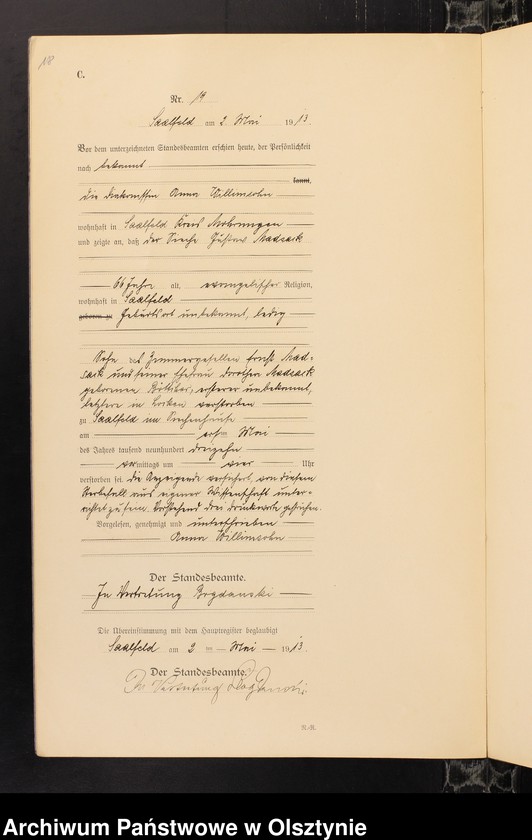 18
C.
Nr. 19
Saalfeld am 2. Mai 1913.
Vor dem unterzeichneten Standesbeamten erschien heute, der Persönlichkeit
nach bekannt
kannt,
die Diakonissin Anna Willimsohn
wohnhaft in Saalfeld Kreis Mohrungen
und zeigte an, daß der Sieche Gustav Madsack
66 Jahre alt, evangelischer Religion,
wohnhaft in Saalfeld
geboren zu Geburtsort unbekannt, ledig
Sohn des Zimmergesellen Ernst Mad-
sack und seiner Ehefrau Dorothea Madsack
geborenen ersterer unbekannt,
letztere in verstorben
zu Saalfeld im Siechenhause
am ersten Mai
des Jahres tausend neunhundert dreizehn
vormittags um vier Uhr
verstorben sei. Die Anzeigende versichert, von diesem
Sterbefall aus eigener Wissenschaft unter-
richtet zu sein. Vorstehend drei Druckworte gestrichen.
Vorgelesen, genehmigt und unterschrieben
Anna Willimsohn
Der Standesbeamte.
In Vertretung Bogdanski
Die Übereinstimmung mit dem Hauptregister beglaubigt
Saalfeld am 2 ten Mai 1913.
Der Standesbeamte.
In Vertretung Bogdanski.
Archiwum Państwowe w Olsztynie